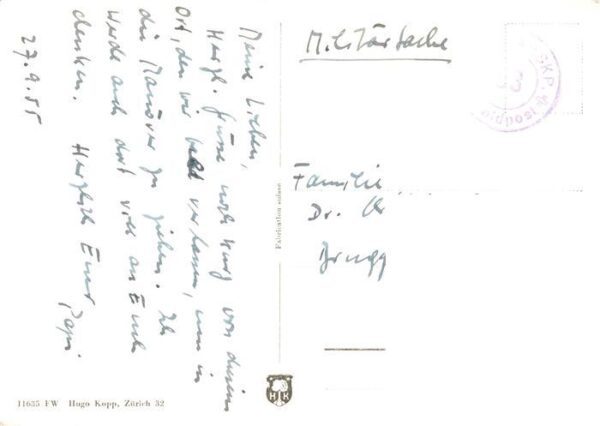 Meine Lieben,
Herzl. Grüsse noch kurz von diesem
Ort, den wir bald verlassen, um in
die Manöver zu ziehen. Ich
werde auch dort viel an Euch
denken. Herzlich Euer Papi
27.9.55
Militärsache
KP.
Feldpost
Familie
Dr.
Brugg
Fabrication suisse
H K
11635 FW Hugo Kopp, Zürich 32